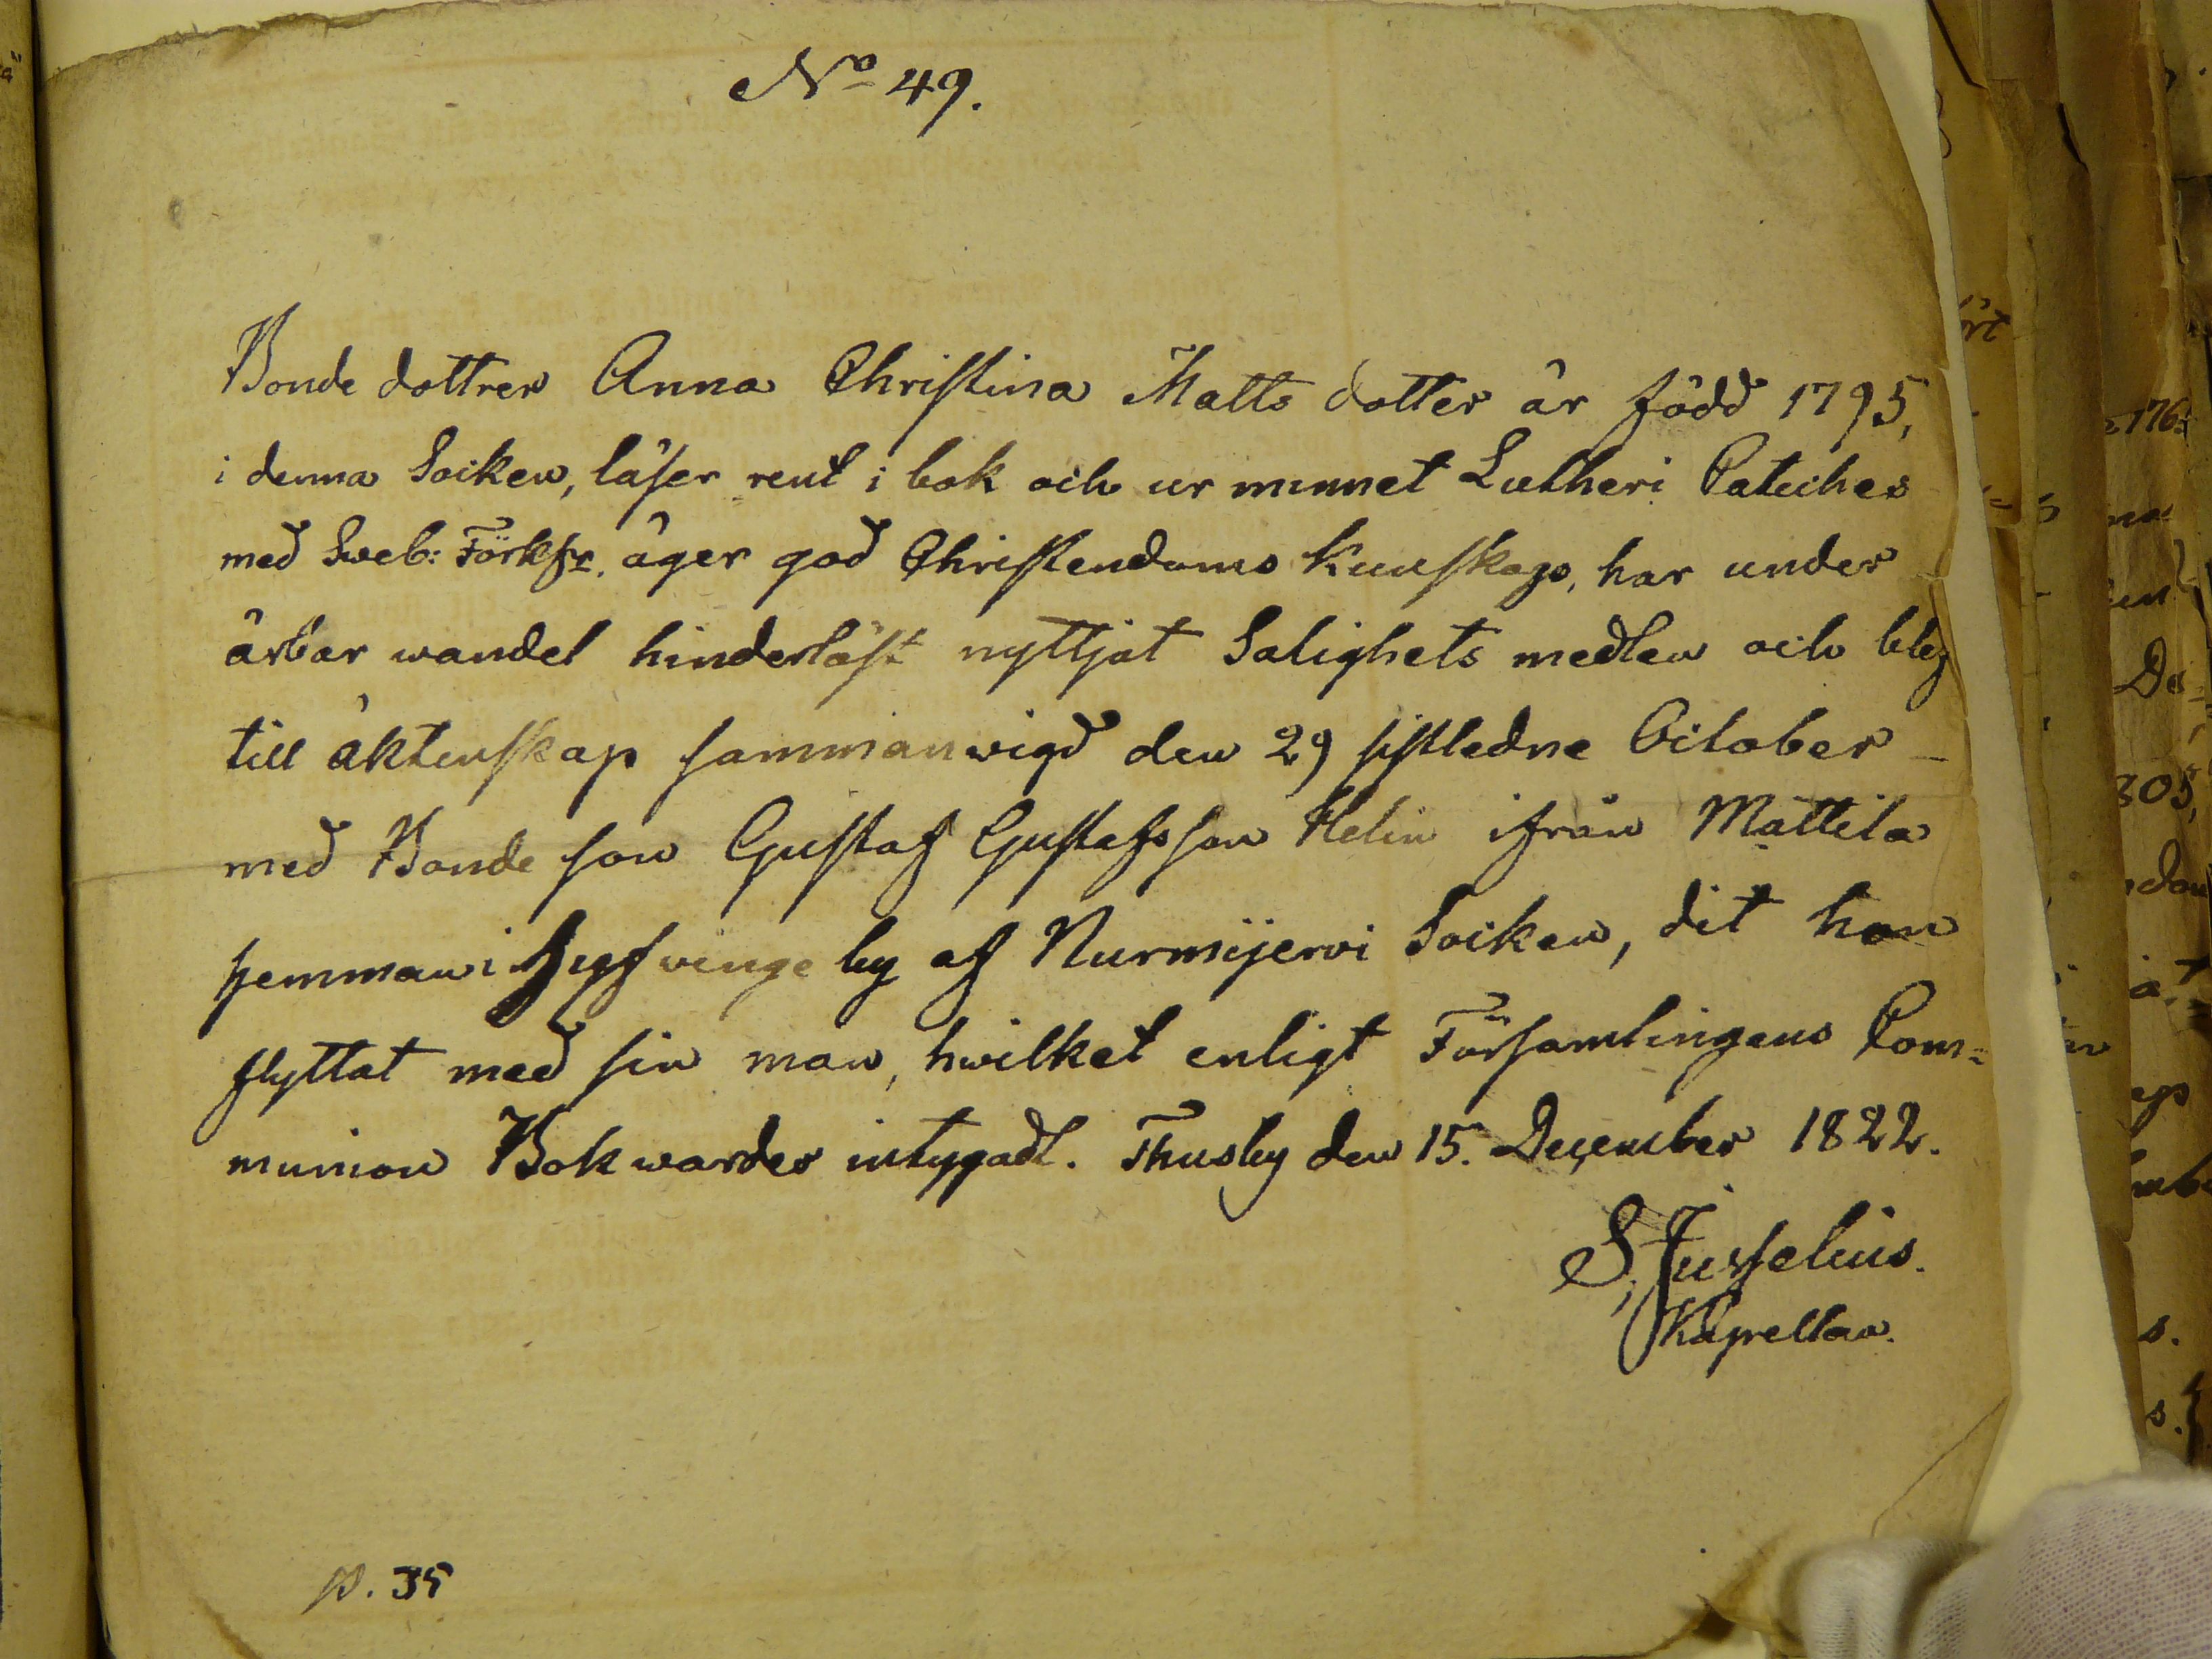 No 49.
Bonde dottren Anna Christina Matts dotter är född 1795,
i denna Socken, läser rent i bok och ur minnet Lutheri Cateches
med Sveb: Förkfr. äger god Christendoms kunskap, har under
ärbar wandel hinderlöst nyttjat Salighets medlen och blef
till äktenskap sammanwigd den 29 sistledne October
med Bonde son Gustaf Gustafsson Helin ifrån Mattila
hemman i by af Nurmijervi Socken, dit hon
flyttat med sin man, hwilket enligt Församlingens Com=
munion Bok warder intygadt. Thusby den 15. December 1822.
S. Juselius.
Kapellan.
p. 35